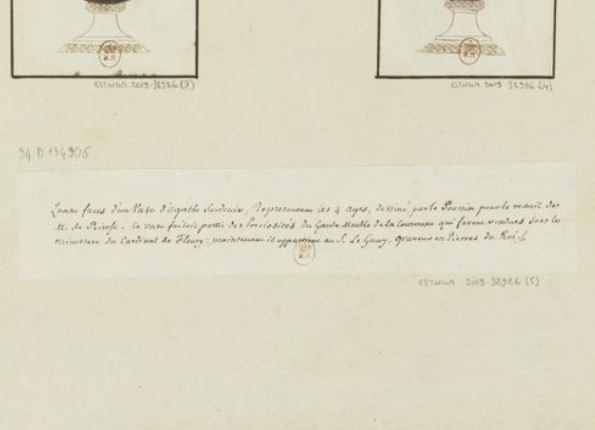 ESTNUM 2019-38986 (3)
ESTNUM 2019-38986 (4)
94 D 134906
Quatre faces d'un Vase d'agathe Sardoine, Representant les 4 ages, dessiné par le Poussin pour le recueil de
M. de Peiresc. Ce vase faisoit partie des Preciosités du Garde Meuble de la Couronne qui furent vendues sous le
ministere du Cardinal de Fleury: maintenant il appartient au S. Le Guay, graveur en Pierres du Roi.
ESTNUM 2019-38986 (5)